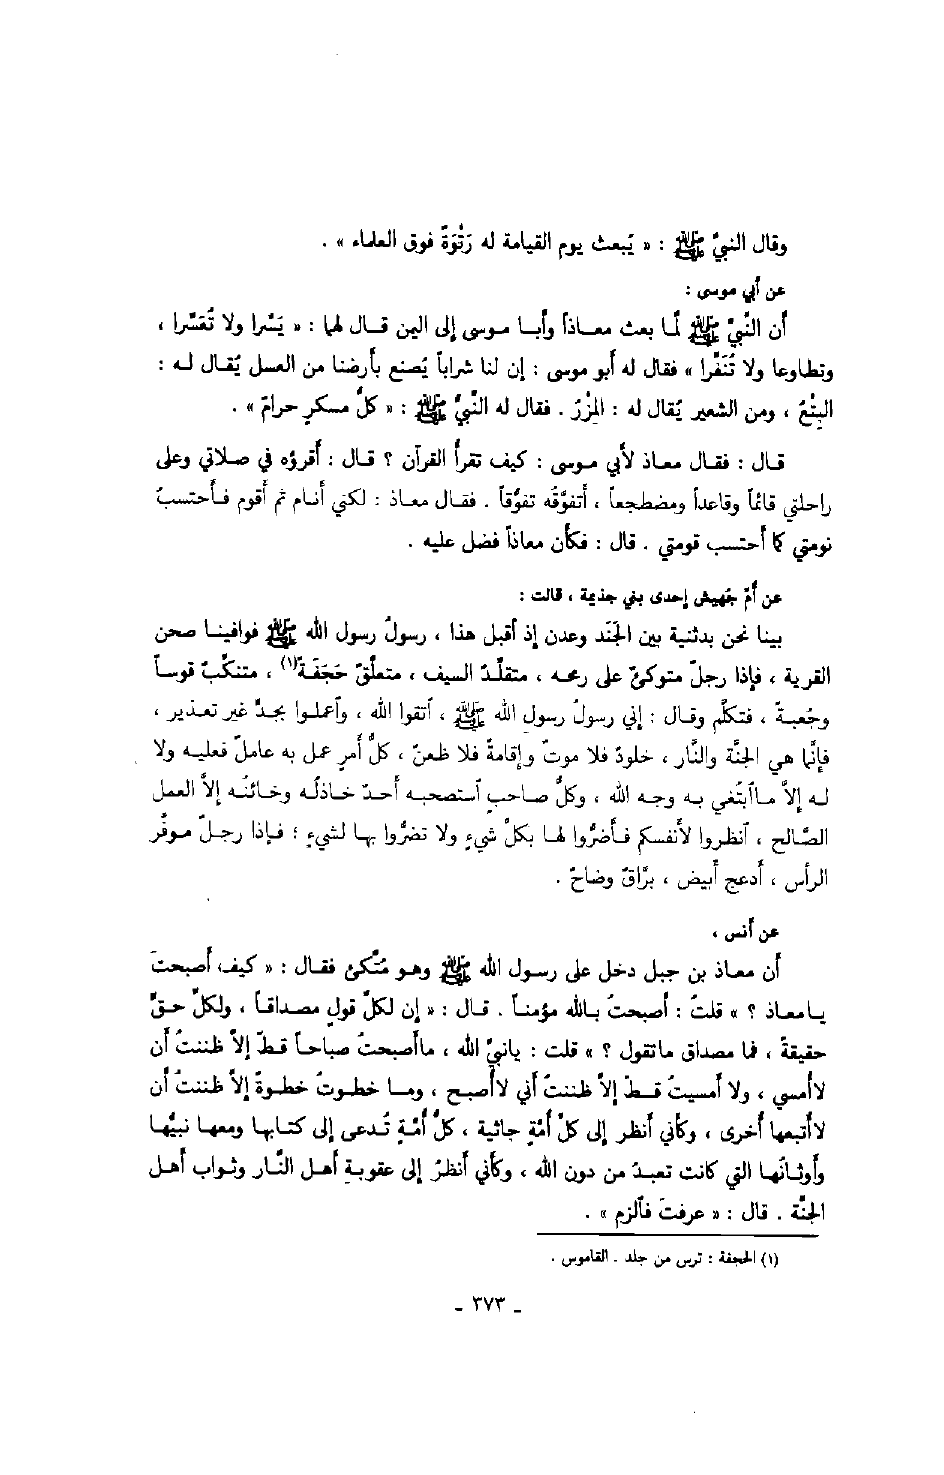 وقال النبيّ ﷺ : « يُبعث يوم القيامة له رَتْوَةً فوق العلماء » .
عن أبي موسى :
أن النَّبيَّ ﷺ لمَّا بعث معاذاً وأبا موسى إلى اليمن قال لهما : « يَسِّرا ولا تُعَسِّرا ،
وتطاوعا ولا تُنَفِّرا » فقال له أبو موسى : إن لنا شراباً يُصنع بأرضنا من العسل يُقال له :
البِتْعُ ، ومن الشعير يُقال له : المِزْرُ . فقال له النَّبيُّ ﷺ : « كلُّ مسكرٍ حرامٌ » .
قال : فقال معاذ لأبي موسى : كيف تقرأ القرآن ؟ قال : أقرؤه في صلاتي وعلى
راحلتي قائماً وقاعداً ومضطجعاً ، أتفوَّقُه تفوُّقاً . فقال معاذ : لكني أنام ثم أقوم فأحتسبُ
نومتي كما أحتسب قومتي . قال : فكأن معاذاً فضل عليه .
عن أمّ جُهيش إحدى بني جذيمة ، قالت :
بينا نحن بدثنية بين الجَنَد وعدن إذ أقبل هذا ، رسولُ رسول الله ﷺ فوافينا صحن
القرية ، فإذا رجلٌ متوكئٌ على رمحه ، متقلّدٌ السيف ، متعلّقٌ حَجَفَةً(١) ، متنكّبٌ قوساً
وجُعبةً ، فتكلّم وقال : إني رسولُ رسول الله ﷺ ، اتقوا الله ، وٱعملوا بجدٍّ غير تعذير ،
فإنَّما هي الجنَّة والنَّار ، خلودٌ فلا موتٌ وإقامةٌ فلا ظعنٌ ، كلُّ أمرٍ عمل به عاملٌ فعليه ولا
له إلاَّ ماٱبتُغي به وجه الله ، وكلُّ صاحبٍ ٱستصحبه أحدٌ خاذلُه وخائنُه إلاَّ العمل
الصَّالح ، ٱنظروا لأنفسكم فأضرُّوا لها بكلّ شيءٍ ولا تضرُّوا بها لشيءٍ ؛ فإذا رجلٌ موفَّر
الرأس ، أدعج أبيض ، برَّاقٌ وضاحٌ .
عن أنس ،
أن معاذ بن جبل دخل على رسول الله ﷺ وهو متَّكئ فقال : « كيف أصبحتَ
يامعاذ ؟ » قلتُ : أصبحتُ بالله مؤمناً . قال : « إن لكلّ قولٍ مصداقاً ، ولكلّ حقٍّ
حقيقةً ، فما مصداق ماتقول ؟ » قلت : يانبيَّ الله ، ماأصبحتُ صباحاً قطّ إلاَّ ظننتُ أن
لاأمسي ، ولا أمسيتُ قطّ إلاَّ ظننتُ أني لاأصبح ، وما خطوتُ خطوةً إلاَّ ظننتُ أن
لاأتبعها أخرى ، وكأني أنظر إلى كلّ أمَّةٍ جاثية ، كلُّ أمَّةٍ تُدعى إلى كتابها ومعها نبيُّها
وأوثانُها التي كانت تعبدُ من دون الله ، وكأني أنظرُ إلى عقوبةِ أهل النَّار وثواب أهل
الجنَّة . قال : « عرفتَ فٱلزم » .
(١) الحجفة : ترس من جلد . القاموس .
ـ ٣٧٣ ـ